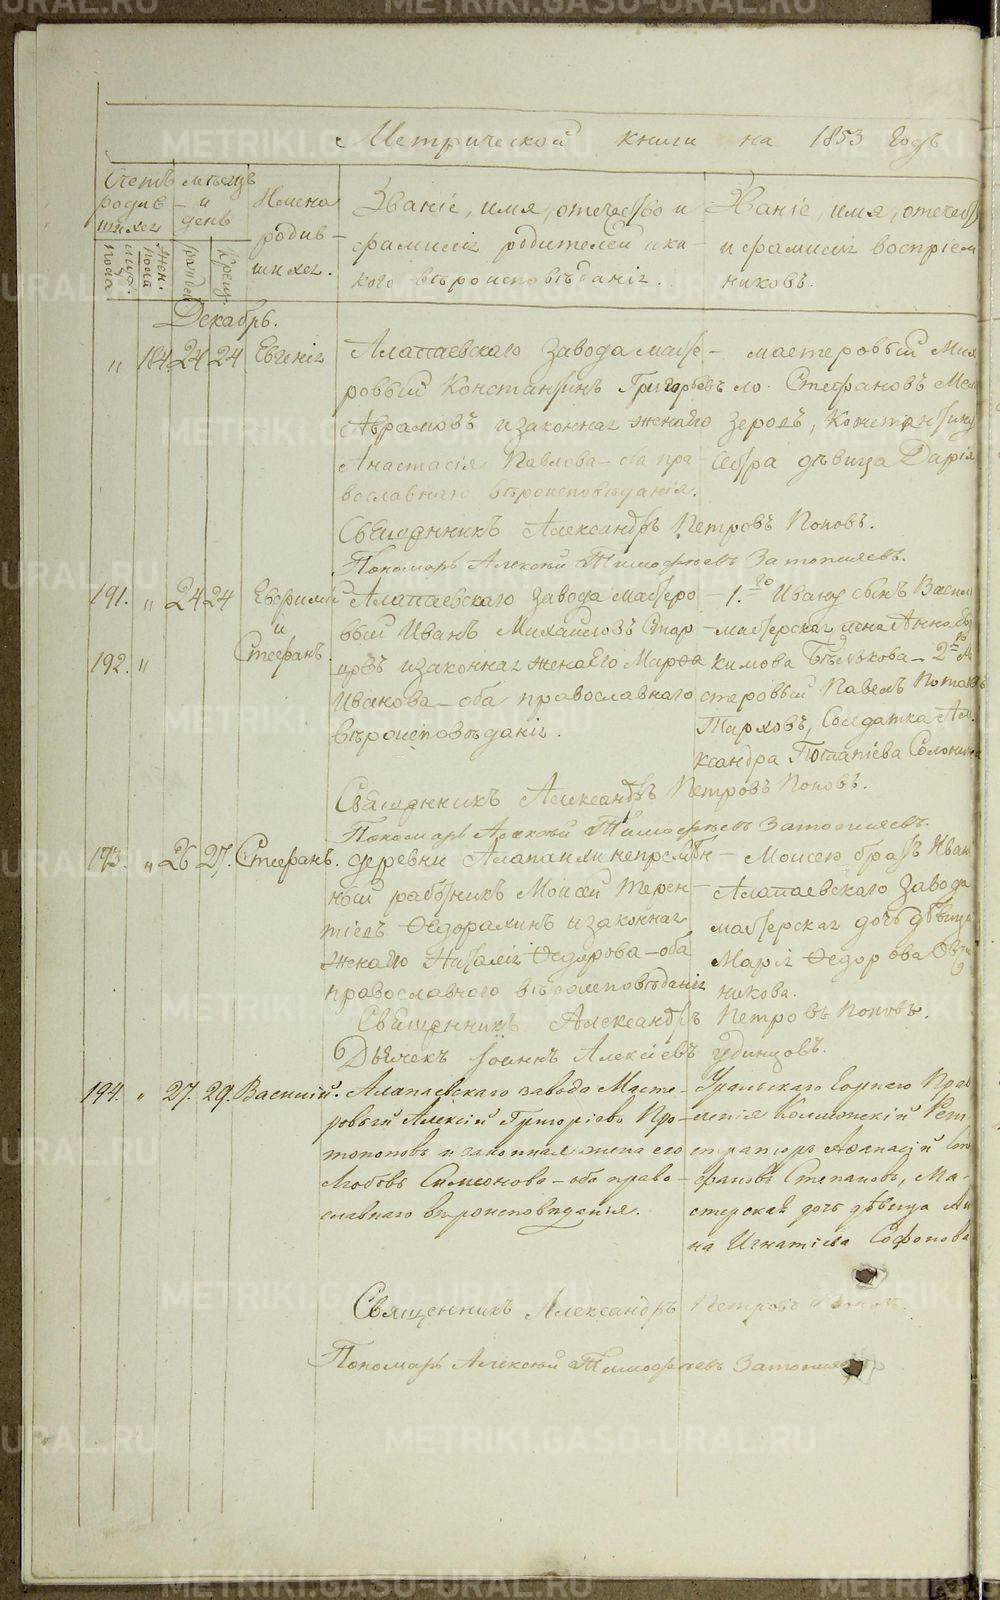 Метрической книги на 1853 годъ
Счетъ родившихся
мѣсяцъ и день
Имена родившихся.
Званіе, имя, отечество и фамилія родителей и какого вѣроисповѣданія.
Званіе, имя, отечест и фамилія воспріемниковъ.
Муж. пола
Жен. пола
рожден
Крещ.
Декабрь.
„ 184 24 24 Евгенія
Алапаевскаго завода масте-
ровый Константинъ Григорьевъ
Абрамовъ и законная жена его
Анастасія Павлова – оба пра
вославнаго вѣроисповѣданія.
мастеровый Миха
ло Стефановъ
Константину
сестра дѣвица Дарія
Священникъ Александръ Петровъ Поповъ.
Пономарь Алексѣй Тимофѣевъ Затопляевъ.
191. „ 24 24 Евфимій
и
192. „ Стефанъ.
Алапаевскаго завода мастеро
вый Иванъ Михайловъ Стар
цовъ и законная жена его Марѳа
Иванова – оба православнаго
вѣроисповѣданія.
1.го Ивану сынъ Васил
мастерская жена Анна
кимова – 2го
стеровый Павелъ Потап
Тарховъ, Солдатка Але
ксандра Потапіева
Священникъ Александръ Петровъ Поповъ.
Пономарь Алексѣй Тимофѣевъ Затопляевъ.
193. „ 26 27. Стефанъ.
деревни Алапаихи непремѣн
ный работникъ Моисей Терен
тіевъ и законная
жена его Наталія Ѳедорова – оба
православнаго вѣроисповѣданія
Моисею братъ Иван
Алапаевскаго завода
мастерская дочь дѣвица
Марія Ѳедорова
никова.
Священникъ Александръ Петровъ Поповъ.
Дьячекъ Іоаннъ Алексіевъ Удинцовъ.
194. „ 27. 29. Василій.
Алапаевскаго завода Масте-
ровый Алексій Григоріевъ Про-
топоповъ и законная жена его
Любовь Симеонова – оба право-
славнаго вѣроисповѣданія.
Уральскаго Горнаго Прав
ленія
страторъ Аѳанасій Сте
фановъ Степановъ, Ма-
стерская дочь дѣвица Ан
на Игнатіева Софонова
Священникъ Александръ Петровъ Поповъ.
Пономарь Алексѣй Тимофѣевъ
METRIKI.GASO-URAL.RU